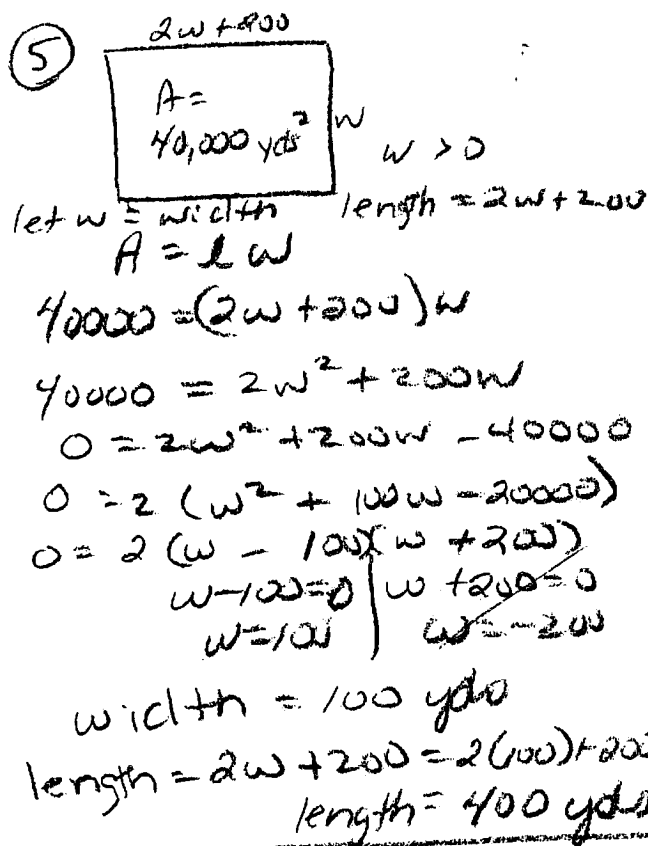 5
2w + 200
A =
40,000 yds² w
w > 0
let w = width length = 2w + 200
A = l w
40000 = (2w + 200) w
40000 = 2w² + 200w
0 = 2w² + 200w - 40000
0 = 2 (w² + 100w - 20000)
0 = 2 (w - 100)(w + 200)
w - 100 = 0 | w + 200 = 0
w = 100 | w = -200
width = 100 yds
length = 2w + 200 = 2(100) + 200
length = 400 yds